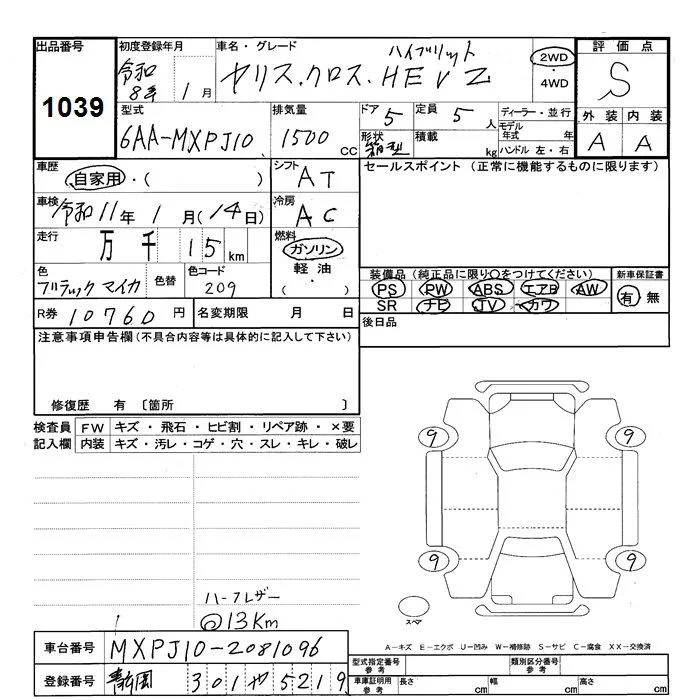 出品番号 初度登録年月 車名・グレード 評価点
1039 令和8年 1月 ハイブリット
ヤリス.クロス.HEV Z 2WD・4WD S
型式 排気量 ドア 5 定員 5人 ディーラー・並行 外装 内装
6AA-MXPJ10 1500cc 形状 箱型 積載 kg モデル年式 年 ハンドル 左・右 A A
車歴 自家用・( ) シフト AT セールスポイント(正常に機能するものに限ります)
車検 令和11年1月(14日) 冷房 AC
走行 万千15km 燃料 ガソリン 軽油 ( ・ )
色 ブラックマイカ 色替 色コード 209
装備品(純正品に限り○をつけてください) 新車保証書
PS PW ABS エアB AW 有 無
SR ナビ TV カワ
R券 10760円 名変期限 月 日 後日品
注意事項申告欄(不具合内容等は具体的に記入して下さい)
修復歴 有 〔箇所 〕
検査員 FW キズ・飛石・ヒビ割・リペア跡・×要
記入欄 内装 キズ・汚レ・コゲ・穴・スレ・キレ・破レ
9 9
9 9
スペア
ハーフレザー
@13Km
A-キズ E-エクボ U-凹み W-補修跡 S-サビ C-腐食 XX-交換済
車台番号 MXPJ10-2081096
型式指定番号 参考 類別区分番号 参考
登録番号 静岡 301 や 5219
車庫証明用 参考 長さ cm 幅 cm 高さ cm